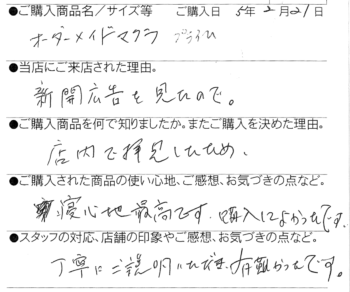 ●ご購入商品名／サイズ等　ご購入日 5年2月21日
オーダーメイドマクラ プライム
●当店にご来店された理由。
新聞広告を見たので。
●ご購入商品を何で知りましたか。またご購入を決めた理由。
店内で拝見したため、
●ご購入された商品の使い心地、ご感想、お気づきの点など。
寝心地最高です。購入してよかったです。
●スタッフの対応、店舗の印象やご感想、お気づきの点など。
丁寧にご説明いただき、有難かったです。